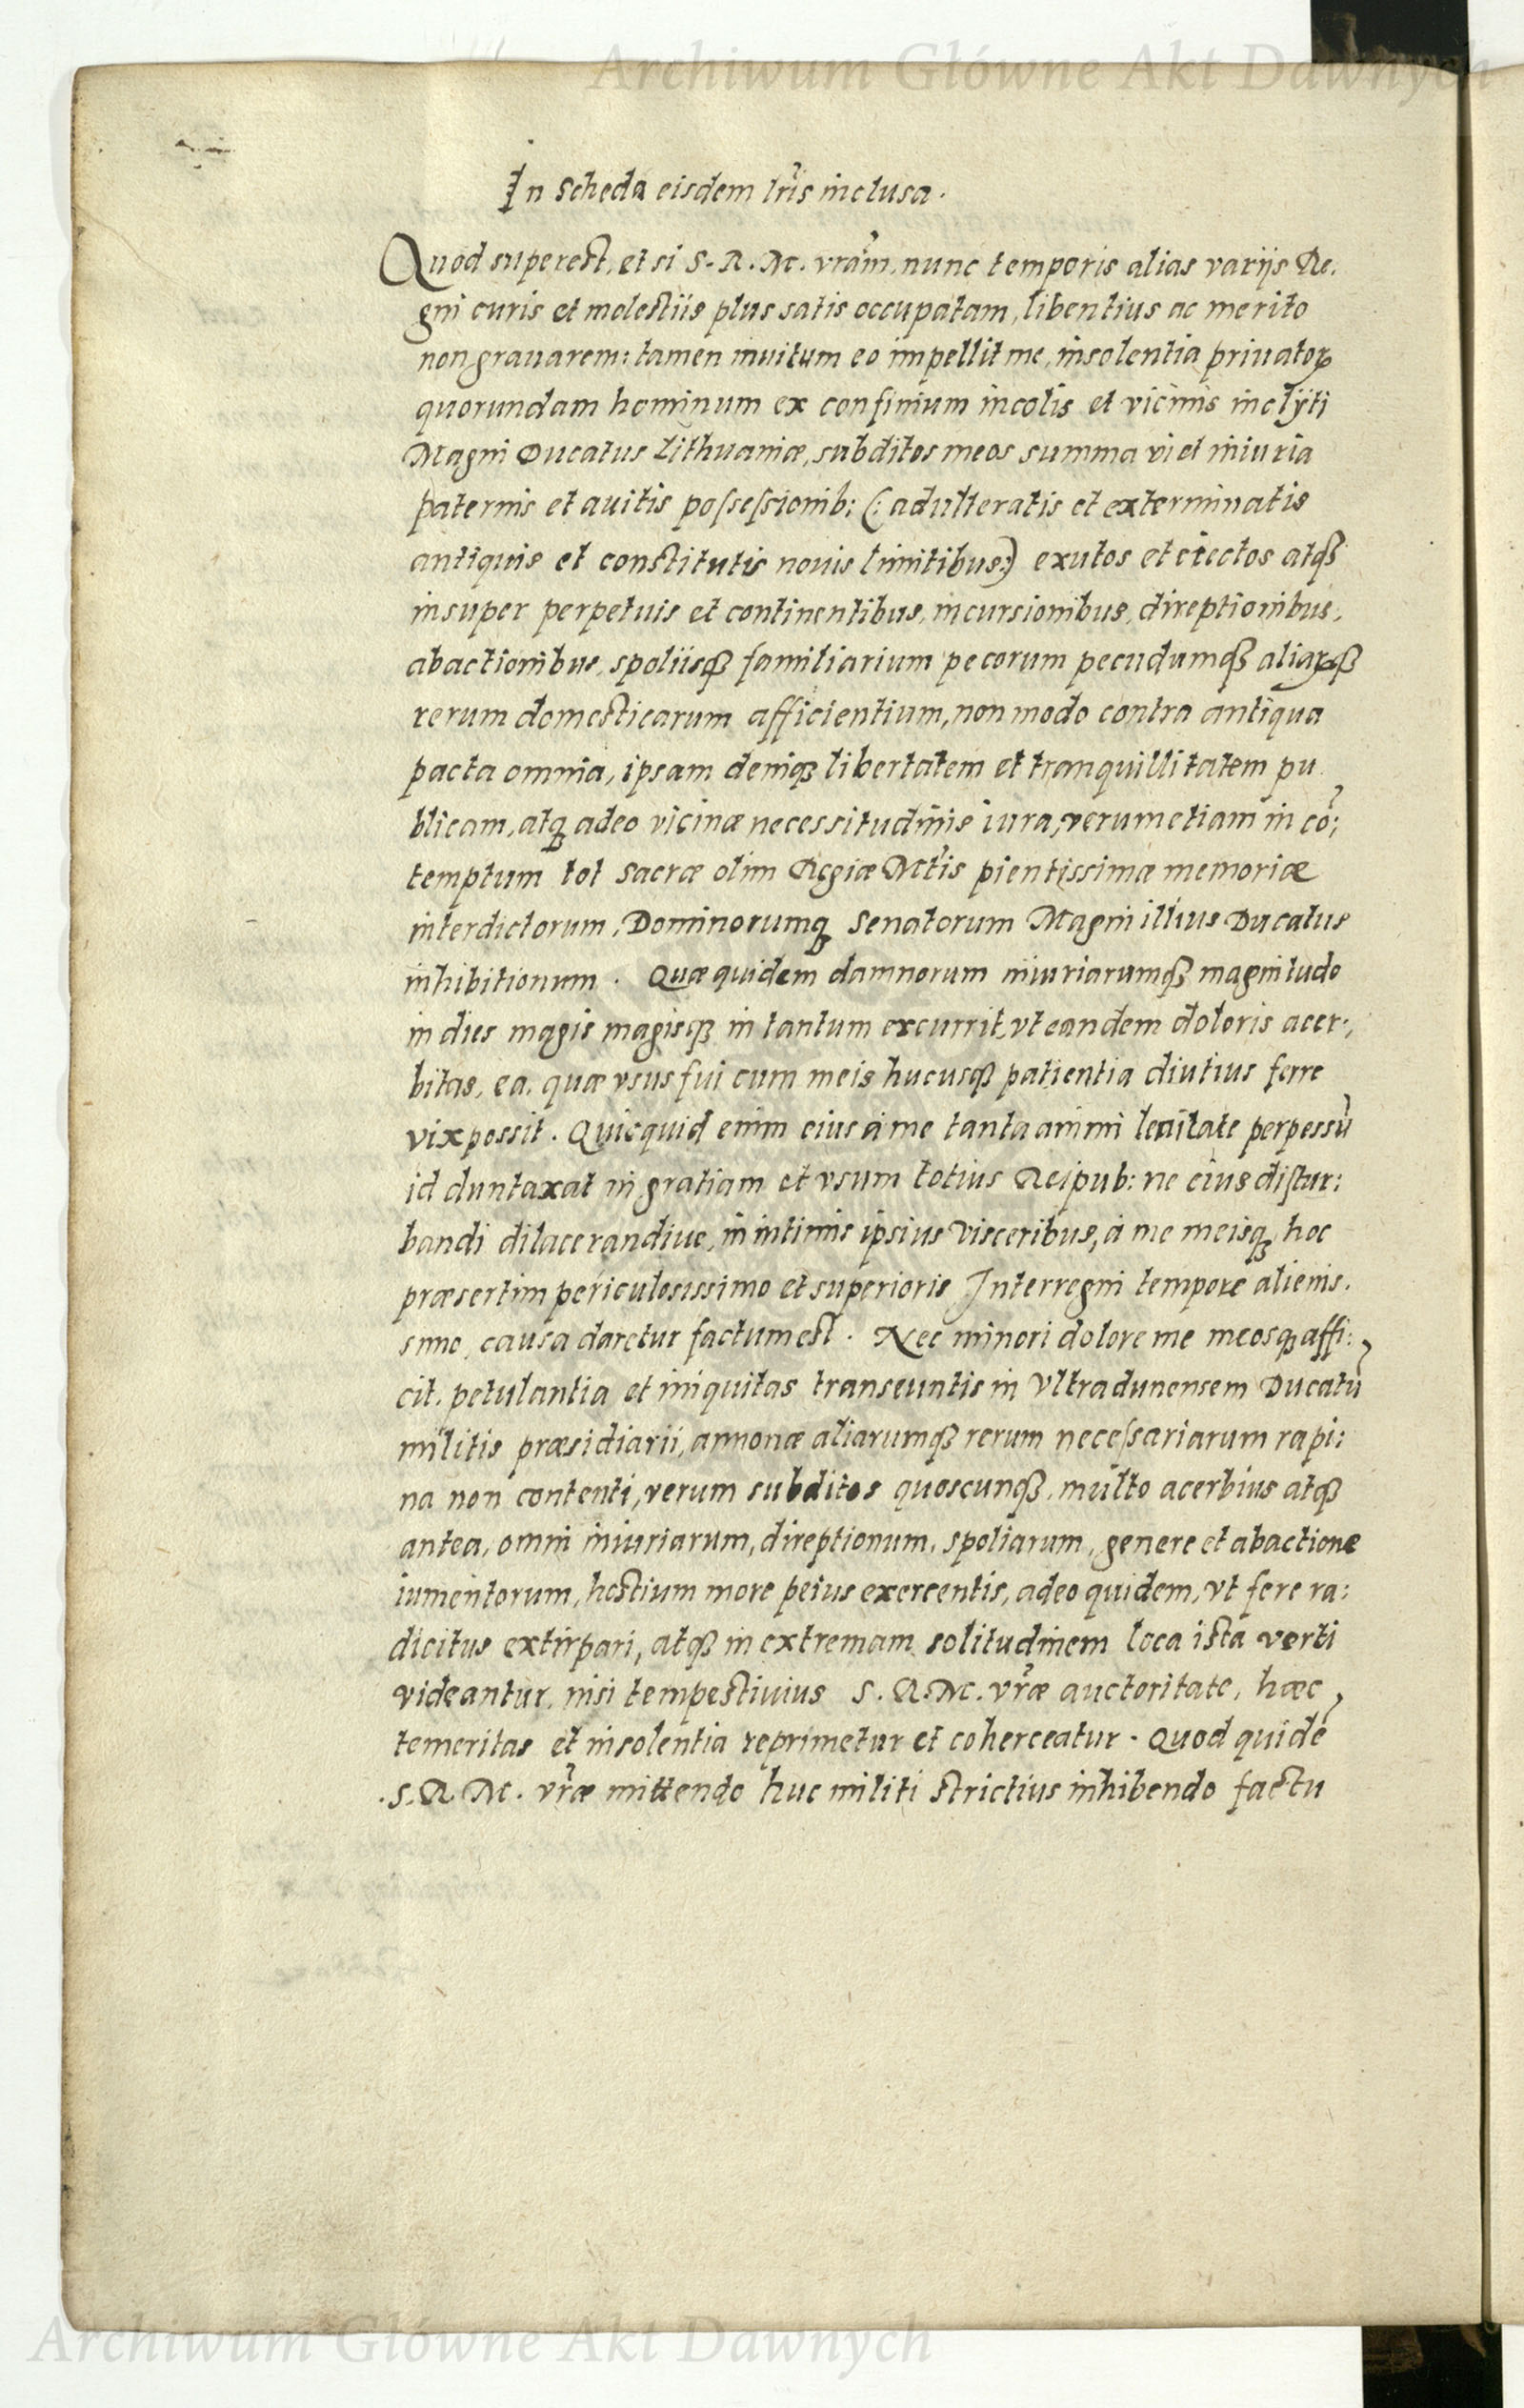 Archiwum Główne Akt Dawnych
In Scheda eisdem lr̃is inclusa.
Quod superest, et si S. R. M. vrãm, nunc temporis alias varijs Re.
gni curis et molestiis plus satis occupatam, libentius ac merito
non grauarem: tamen inuitum eo impellit me, insolentia priuatoꝝ
quorundam hominum ex confinium incolis et vicinis inclÿti
Magni Ducatus Lithuaniæ, subditos meos summa vi et iniuria
paternis et auitis poſseſsionib: (: adulteratis et exterminatis
antiquis et constitutis nouis limitibus:) exutos et eiectos atqꝫ
insuper perpetuis et continentibus, incursionibus, direptionibus,
abactionibus, spoliisqꝫ familiarium pecorum pecudumqꝫ aliaꝝqꝫ
rerum domesticarum afficientium, non modo contra antiqua
pacta omnia, ipsam deniqꝫ libertatem et tranquillitatem pu
blicam, atqꝫ adeo vicinæ necessitudinis iura, verum etiam in cõ:
temptum tot sacræ olim Regiæ Mtis pientissimæ memoriæ
interdictorum, Dominorumqꝫ Senatorum Magni illius Ducatus
inhibitionum. Quæ quidem damnorum iniuriarumqꝫ magnitudo
in dies magis magisqꝫ in tantum excurrit, vt eandem doloris acer:,
bitas, ea, quæ vsus fui cum meis hucusqꝫ patientia diutius ferre
vix possit. Quicquid enim eius à me tanta animi lenitate perpessũ
id duntaxat in gratiam et vsum totius Reipub: ne eius distur:
bandi dilacerandiue, in intimis ipsius visceribus, à me meisqꝫ hoc
præsertim periculosissimo et superioris Interregni tempore alienis.
simo, causa daretur factum est. Nec minori dolore me meosqꝫ affi:
cit, petulantia et iniquitas transeuntis in Vltradunensem Ducatũ
militis præsidiarii, annonæ aliarumqꝫ rerum neceſsariarum rapi:
na non contenti, verum subditos quoscunqꝫ, multo acerbius atqꝫ
antea, omni iniuriarum, direptionum, spoliarum, genere et abactione
iumentorum, hostium more peius exercentis, adeo quidem, vt fere ra:
dicitus extirpari, atqꝫ in extremam solitudinem loca ista verti
videantur, nisi tempestiuius S. R. M. vr̃æ auctoritate, hæc
temeritas et insolentia reprimetur et coherceatur. Quod quidẽ
S. R. M. vr̃æ mittendo huc militi strictius inhibendo factu
Archiwum Główne Akt Dawnych